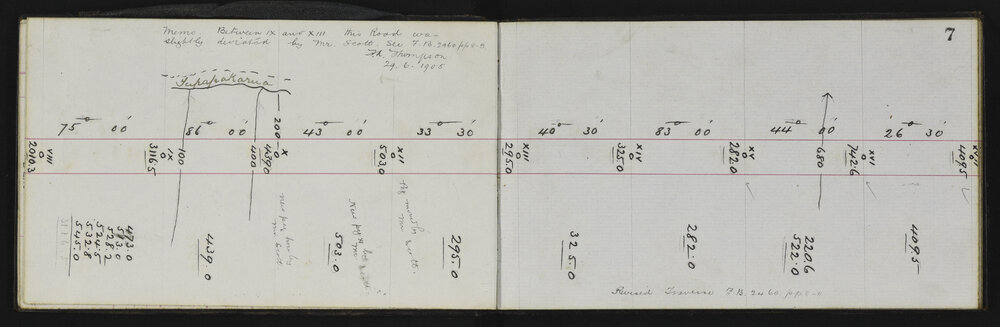 7
Memo Between IX and XIII this Road was
slightly deviated by Mr. Scott. See F.B. 2460 pp 8-9
Thompson
29. 6. 1905
Pupapakarua
75° 00'
86° 00'
43° 00'
33° 30'
40° 30'
83° 00'
44° 00'
26° 30'
VIII
2010.3
IX
3116.5
100
400
200
X
439.0
XII
503.0
XIII
295.0
XIV
325.0
XV
282.0
680
XVI
742.6
XVII
409.5
473.0
513.0
528.2
524.5
532.8
545.0
3116.5
439.0
New peg
Mr Scott
503.0
New peg
Mr
Peg
Mr Scott.
295.0
325.0
282.0
220.6
522.0
409.5
Revised Traverse F.B. 2460 pp 8-9